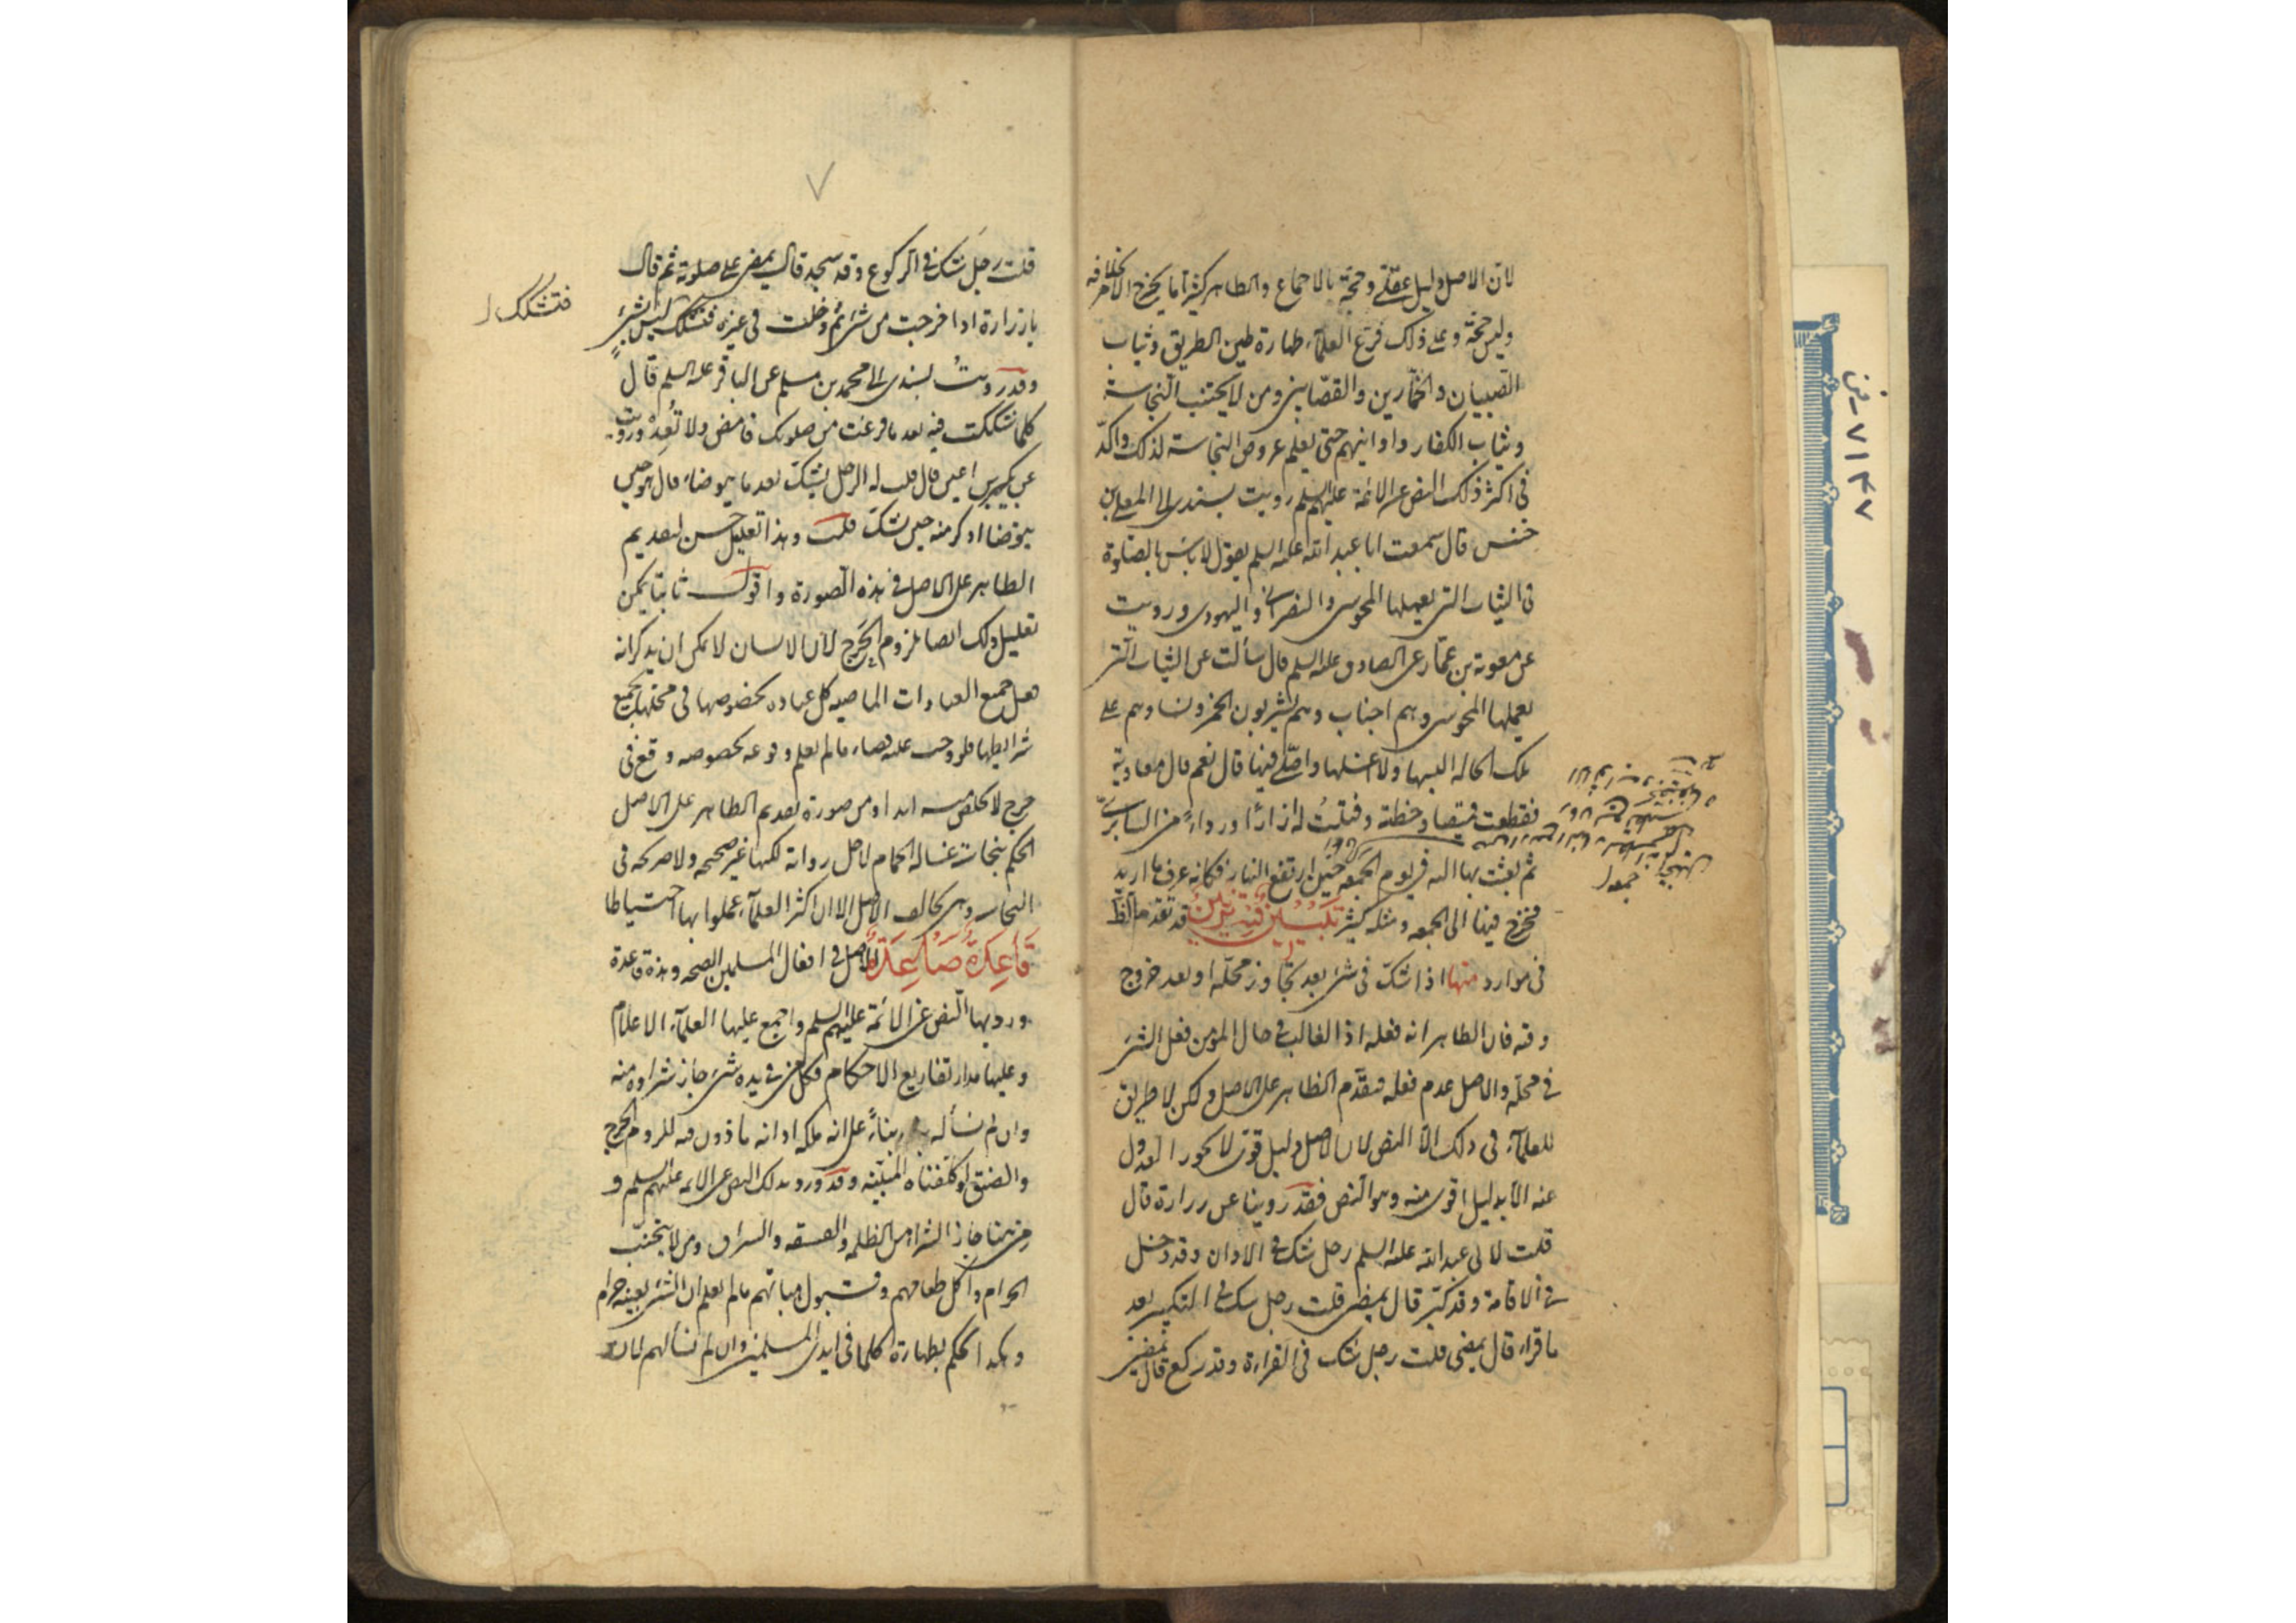 لان الاصل دليل عقلي وحجة بالاجماع والظاهر كثيرا ما يخرج الامر بخلافه
وليس حجة وعلى ذلك فرع العلماء طهارة طين الطريق وثياب
الصبيان والخمارين والقصابين ومن لا يجتنب النجاسة
وثياب الكفار واوانيهم حتى يعلم عروض النجاسة لذلك واكد
في اكثر ذلك النص عن الائمة عليهم السلم رويت بسندى الى المعلى بن
خنيس قال سمعت ابا عبد الله عليه السلم يقول لا باس بالصلوة
في الثياب التي يعملها المجوسي والنصراني واليهودي ورويت
عن معوية بن عمار عن الصادق عليه السلم قال سألت عن الثياب التي
يعملها المجوسي وهم اجناب وهم يشربون الخمر ونساوهم على
تلك الحالة البسها ولا اغسلها واصلي فيها قال نعم قال معاوية
فقطعت قميصا وخطته وفتلت له ازارا ورداء من السابري
ثم بعثت بها اليه في يوم الجمعة حين ارتفع النهار فكانه عرف ما اريد
فخرج فيها الى الجمعة ومثله كثير قد تقدم الظاهر
في موارد منها اذا شك في شئ بعد تجاوز محله او بعد خروج
وقته فان الظاهر انه فعله اذ الغالب في حال المؤمن فعل الشئ
في محله والاصل عدم فعله فيقدم الظاهر على الاصل ولكن لا طريق
للعلماء في ذلك الا النص لان الاصل دليل قوى لا يجوز العدول
عنه الا بدليل اقوى منه وهو النص فقد روينا عن زرارة قال
قلت لابي عبد الله عليه السلم رجل شك في الاذان وقد دخل
في الاقامة وقد كبر قال يمضي قلت رجل شك في التكبير بعد
ما قراء قال يمضي قلت رجل شك في القراءة وقد ركع قال يمضي
قلت رجل شك في الركوع وقد سجد قال يمضى على صلوته ثم قال
يا زرارة اذا خرجت من شئ ثم دخلت في غيره فشكك ليس بشئ
فشكك
وقد رويت بسندى الى محمد بن مسلم عن الباقر عليه السلم قال
كلما شككت فيه بعد ما فرغت من صلوتك فامض ولا تعد ورويت
عن بكير بن اعين قال قلت له الرجل يشك بعد ما يتوضاء قال هو حين
يتوضا اذكر منه حين شك قلت وهذا تعليل حسن لتقديم
الظاهر على الاصل في هذه الصورة واقول ثانيا يمكن
تعليل ذلك ايضا بلزوم الحرج لان الانسان لا يمكن ان يذكر انه
فعل جميع العبادات الماضية كل عباده بخصوصها في محلها بجميع
شرايطها فلو وجب عليه قضاء ما لم يعلم وقوعه بخصوصه وقع في
حرج لا يخلص منه ابدا ومن صورة تقديم الظاهر على الاصل
الحكم بنجاسة غسالة الحمام لاجل رواية لكنها غير صحيحة ولا صريحة في
النجاسة وهي تخالف الاصل الا ان اكثر العلماء عملوا بها احتياطا
قاعدة الاصل في افعال المسلمين الصحة وهذه قاعدة
ورد بها النص عن الائمة عليهم السلم واجمع عليها العلماء الاعلام
وعليها مدار تفاريع الاحكام فكل من في يده شئ جاز شراوه منه
وان لم نساله بناء على انه ملكه او انه ماذون فيه للزوم الحرج
والضيق لو كلفناه البينة وقد ورد بذلك النص عن الائمة عليهم السلم و
من هنا جاز الشرا من الظلمة والفسقة والسراق ومن لا يجتنب
الحرام واكل طعامهم وقبول هباتهم ما لم يعلم ان الشئ بعينه حرام
وهكذا الحكم بطهارة كلما في ايدى المسلمين وان لم نسالهم لان
۷۱۴۷